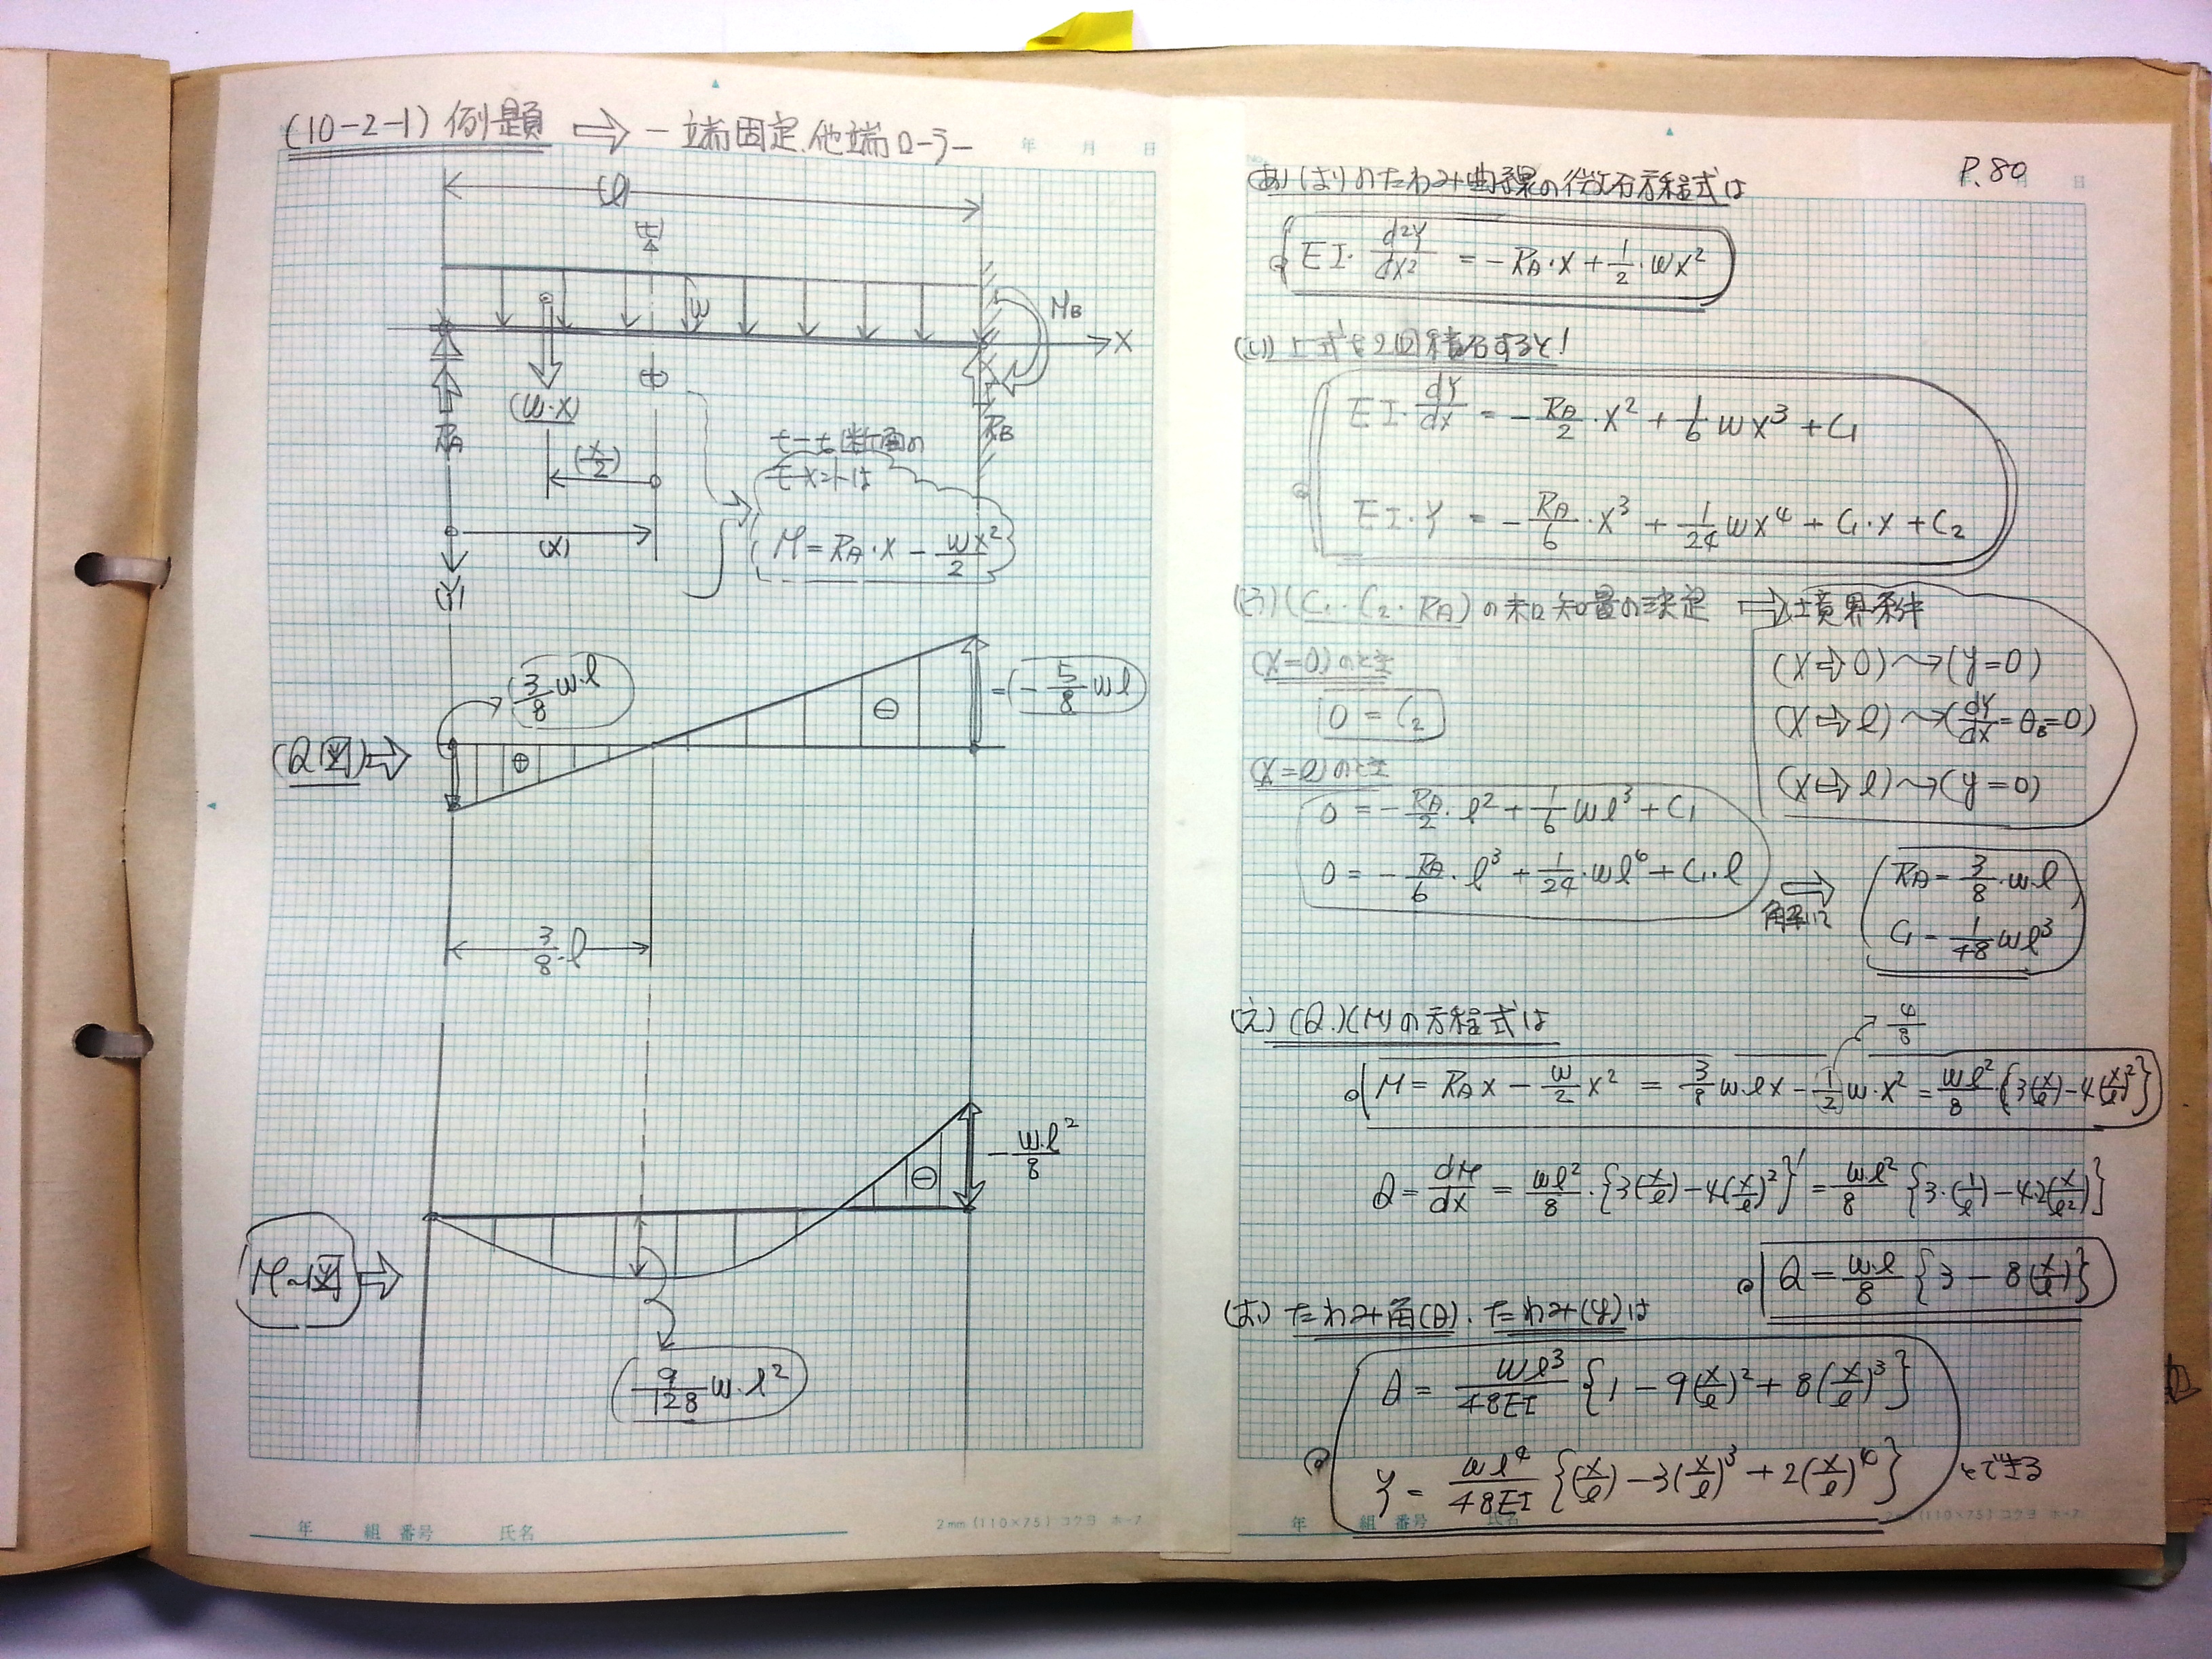 (10-2-1) 例題 ⇒ 一端固定.他端ローラー
年 月 日
(l)
(t)
w
MB
X
(t)
(w·x)
RA
RB
(x/2)
(x)
(Y)
t-t断面の
モーメントは
M = RA·x - wx²/2
(Q図) ⇒
3/8 w·l
⊕
⊖
= (-5/8 wl)
3/8·l
M~図 ⇒
⊖
- w·l²/8
9/128 w·l²
年 組 番号 氏名
2mm (110×75) コクヨ ホ-7
P.80
日
(あ) はりのたわみ曲線の微分方程式は
EI·d²Y/dx² = -RA·x + 1/2·wx²
(い) 上式を2回積分すると!
EI·dY/dx = -RA/2·x² + 1/6 wx³ + C1
EI·Y = -RA/6·x³ + 1/24 wx⁴ + C1·x + C2
(う) (C1·C2·RA) の未知量の決定 ⇒ 境界条件
(x⇒0) ~> (y=0)
(x⇒l) ~> (dY/dx = θB = 0)
(x⇒l) ~> (y=0)
(x=0)のとき
0 = C2
(x=l)のとき
0 = -RA/2·l² + 1/6 wl³ + C1
0 = -RA/6·l³ + 1/24·wl⁴ + C1·l
⇒ 解いて
RA = 3/8·w·l
C1 = 1/48 wl³
(え) (Q.)(M)の方程式は
4/8
M = RAx - w/2 x² = 3/8 w·lx - 1/2 w·x² = wl²/8·{3(x/l) - 4(x/l)²}
Q = dM/dx = wl²/8·{3(x/l) - 4(x/l)²}' = w·l²/8 {3·(1/l) - 4·2(x/l²)}
Q = w·l/8 {3 - 8(x/l)}
(お) たわみ角(θ).たわみ(y)は
θ = wl³/48EI {1 - 9(x/l)² + 8(x/l)³}
y = wl⁴/48EI {(x/l) - 3(x/l)³ + 2(x/l)⁴}
とできる
年 組 番号 氏名
2mm (110×75) コクヨ ホ-7